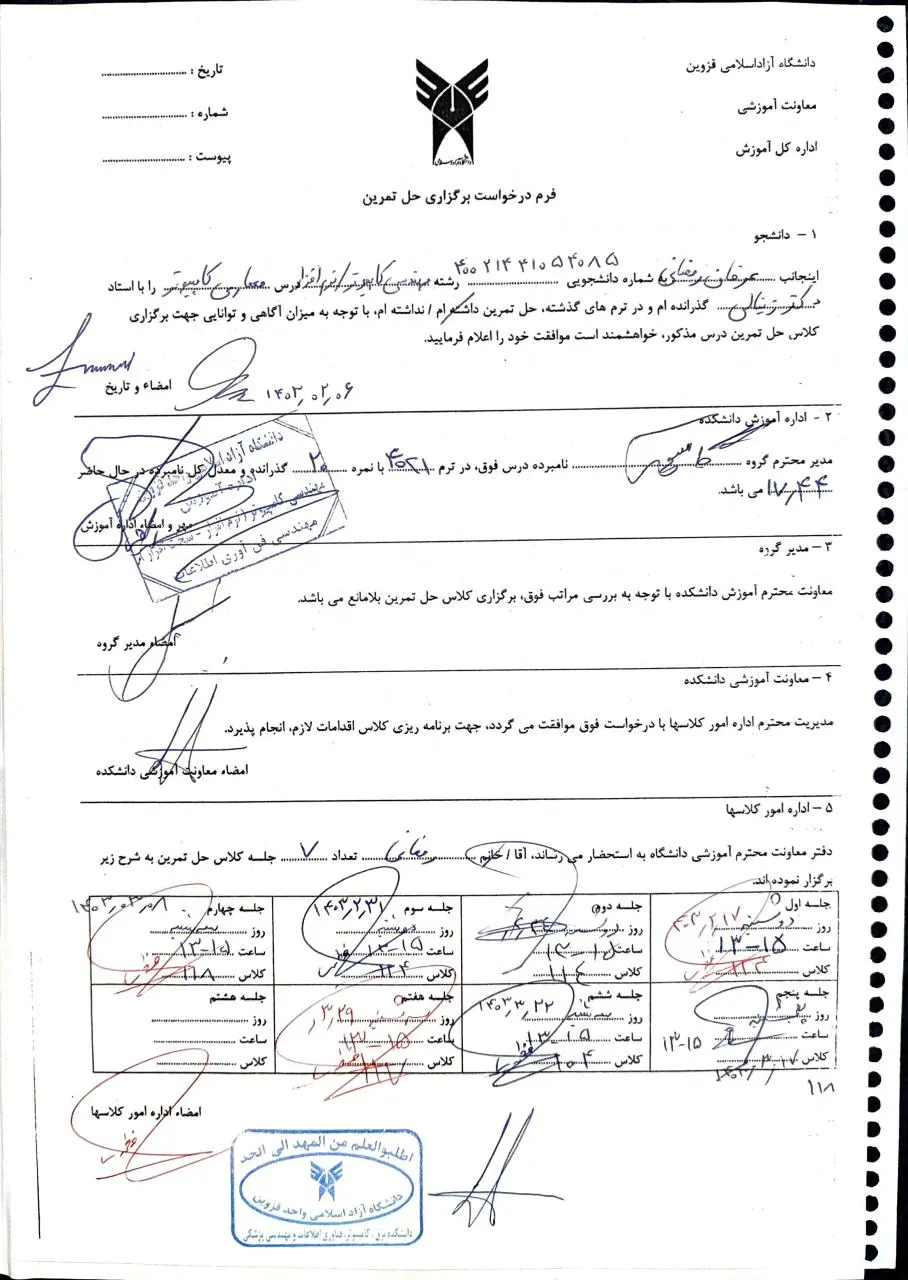 دانشگاه آزاد اسلامی قزوین
معاونت آموزشی
اداره کل آموزش
تاریخ : ....................
شماره : ....................
پیوست : ....................
فرم درخواست برگزاری حل تمرین
۱ - دانشجو
اینجانب رمضانی به شماره دانشجویی ۴۰۰۲۱۴۴۱۰۵۴۰۸۵ رشته مهندسی کامپیوتر/نرم افزار درس معماری کامپیوتر را با استاد
دکتر گذرانده ام و در ترم های گذشته، حل تمرین داشته ام / نداشته ام، با توجه به میزان آگاهی و توانایی جهت برگزاری
کلاس حل تمرین درس مذکور، خواهشمند است موافقت خود را اعلام فرمایید.
امضاء و تاریخ
۱۴۰۳,۰۲,۰۶
۲ - اداره آموزش دانشکده
مدیر محترم گروه نامبرده درس فوق، در ترم ۴۰۲۱ با نمره ۲۰ گذرانده و معدل کل نامبرده در حال حاضر
۱۷,۴۴ می باشد.
مهر و امضاء اداره آموزش
دانشگاه آزاد اسلامی واحد قزوین
اداره آموزش
مهندسی کامپیوتر (نرم افزار - سخت افزار)
مهندسی فن آوری اطلاعات
۳ - مدیر گروه
معاونت محترم آموزش دانشکده با توجه به بررسی مراتب فوق، برگزاری کلاس حل تمرین بلامانع می باشد.
امضاء مدیر گروه
۴ - معاونت آموزشی دانشکده
مدیریت محترم اداره امور کلاسها با درخواست فوق موافقت می گردد، جهت برنامه ریزی کلاس اقدامات لازم، انجام پذیرد.
امضاء معاونت آموزشی دانشکده
۵ - اداره امور کلاسها
دفتر معاونت محترم آموزشی دانشگاه به استحضار می رساند، آقا / خانم رمضانی تعداد ۷ جلسه کلاس حل تمرین به شرح زیر
برگزار نموده اند.
جلسه اول
روز دوشنبه ۱۴۰۳,۲,۱۷
ساعت ۱۳-۱۵
کلاس
جلسه دوم
روز
ساعت
کلاس ۱۱۴
جلسه سوم ۱۴۰۳,۲,۳۱
روز دوشنبه
ساعت ۱۳-۱۵
کلاس
جلسه چهارم ۱۴۰۳,۰۳,۰۸
روز سه شنبه
ساعت ۱۳-۱۵
کلاس ۱۱۸
جلسه پنجم
روز
ساعت ۱۳-۱۵
کلاس ۱۴۰۳,۳,۱۷
۱۱۸
جلسه ششم ۱۴۰۳,۳,۲۲
روز سه شنبه
ساعت ۱۳-۱۵
کلاس ۱۰۴
جلسه هفتم ۳,۲۹
روز سه شنبه
ساعت ۱۳-۱۵
کلاس
جلسه هشتم
روز
ساعت
کلاس
امضاء اداره امور کلاسها
اطلبوالعلم من المهد الی الحد
دانشگاه آزاد اسلامی واحد قزوین
دانشکده برق، کامپیوتر، فناوری اطلاعات و مهندسی پزشکی